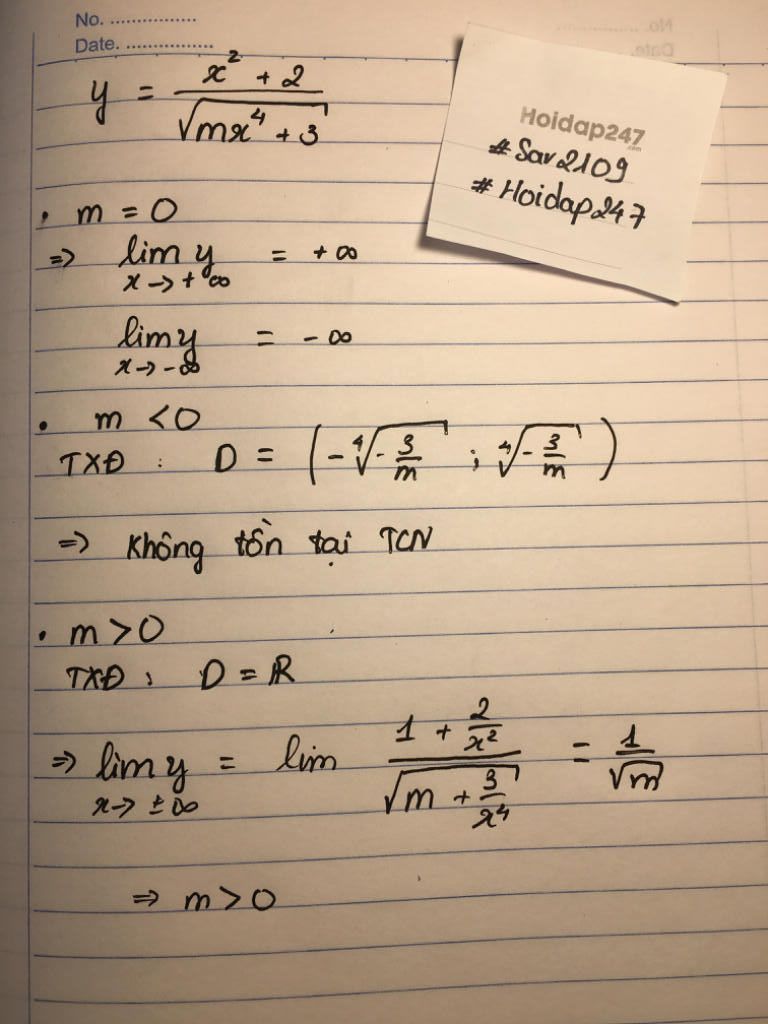 No. ................
Date. ................
y = \frac{x^2 + 2}{\sqrt{mx^4 + 3}}
Hoidap247
.com
#Sar2109
#Hoidap247
• m = 0
=> lim y = +∞
x -> +∞
lim y = -∞
x -> -∞
• m < 0
TXĐ : D = (-\sqrt[4]{-\frac{3}{m}} ; \sqrt[4]{-\frac{3}{m}})
=> Không tồn tại TCN
• m > 0
TXĐ : D = ℝ
=> lim y = lim \frac{1 + \frac{2}{x^2}}{\sqrt{m + \frac{3}{x^4}}} = \frac{1}{\sqrt{m}}
x -> ±∞
=> m > 0